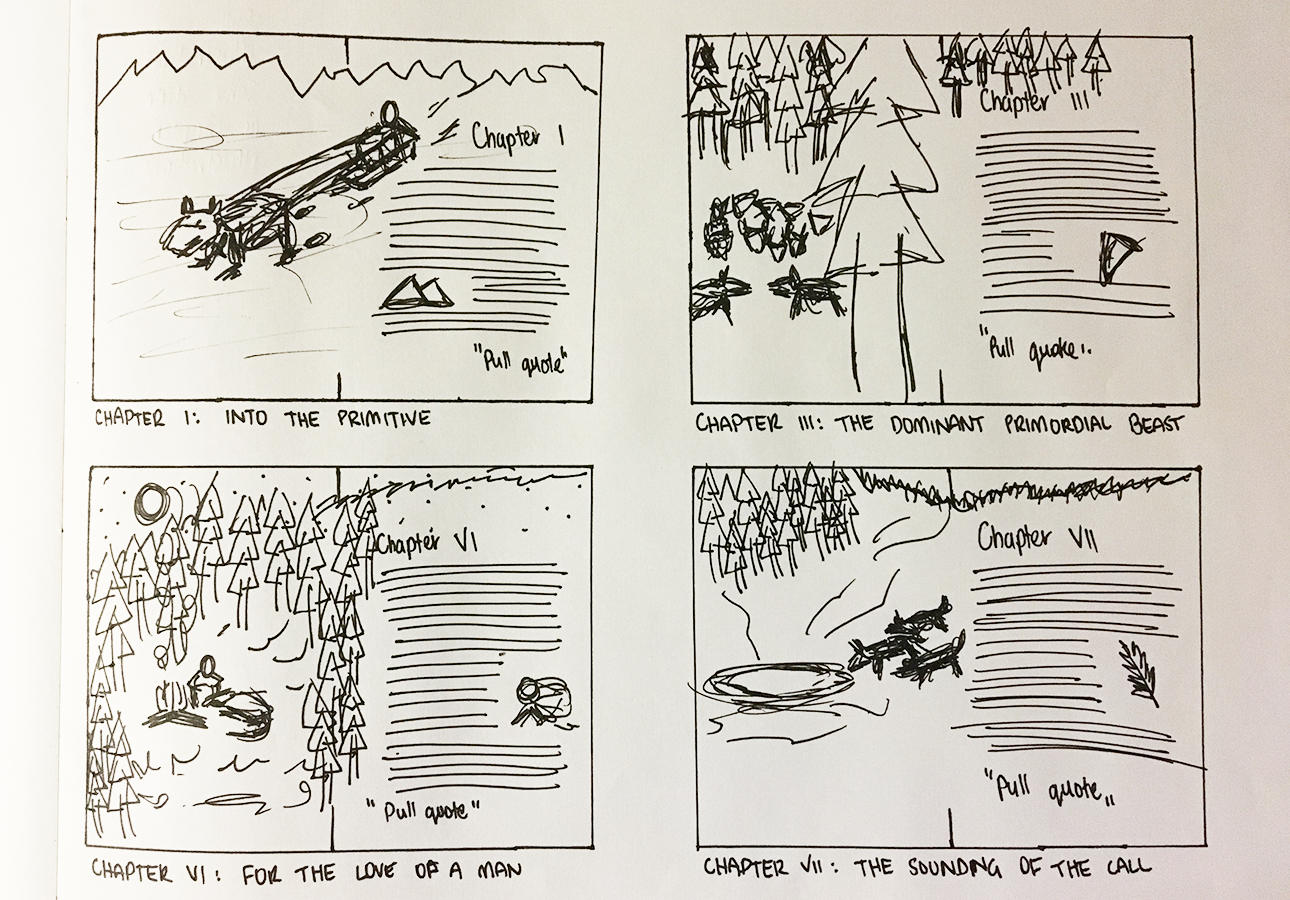 Chapter I
"Pull quote"
CHAPTER I: INTO THE PRIMITIVE
Chapter III
"Pull quote"
CHAPTER III: THE DOMINANT PRIMORDIAL BEAST
Chapter VI
"Pull quote"
CHAPTER VI: FOR THE LOVE OF A MAN
Chapter VII
"Pull quote"
CHAPTER VII: THE SOUNDING OF THE CALL